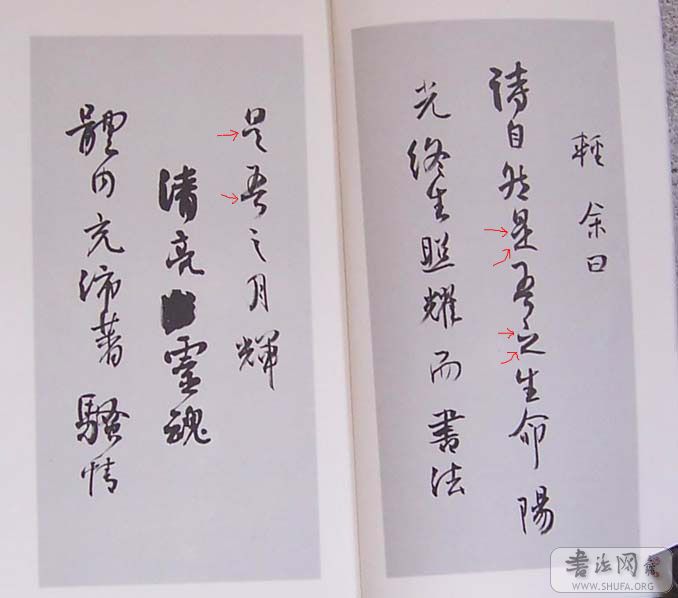 輕余曰
詩自然是吾之生命陽
光終生照耀而書法
是吾之月輝
清亮靈魂
體内充沛著騷情
書法网
WWW.SHUFA.ORG